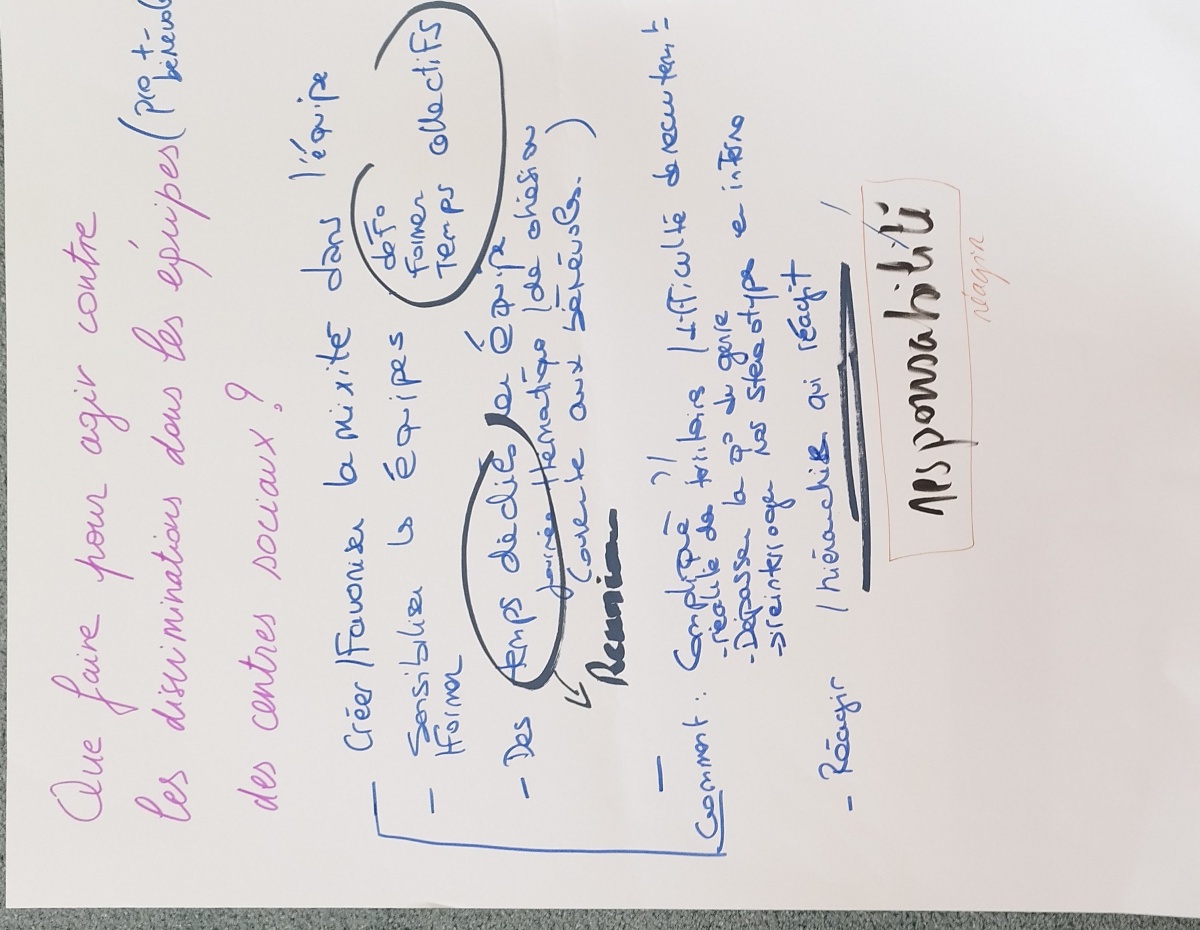 Que faire pour agir contre
les discriminations dans les équipes (pro +
bénévol
des centres sociaux ?
Créer / Favoriser la mixité dans l'équipe
- Sensibiliser les équipes
/ Former
déf°
Former
Temps collectifs
- Des temps dédiés en équipe
journée thématique (de cohésion
(ouverte aux bénévoles. )
Reunion
-
Comment : Compliqué ?! / difficulté de recrutemt
- réalité des territoires
- Dépasser la q° du genre
→ s'réinterroger nos stéréotypes en interne
- Réagir / hiérarchie qui réagit /
responsabilité
réagir